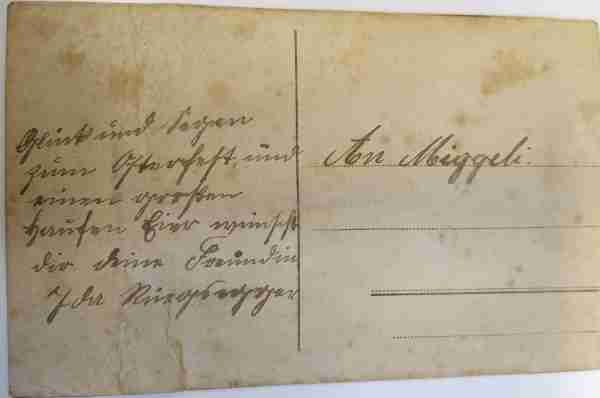 Glück und Segen
zum Osterfest, und
einen großen
Haufen Eier wünscht
dir deine Freundin
Ida
An Miggeli.